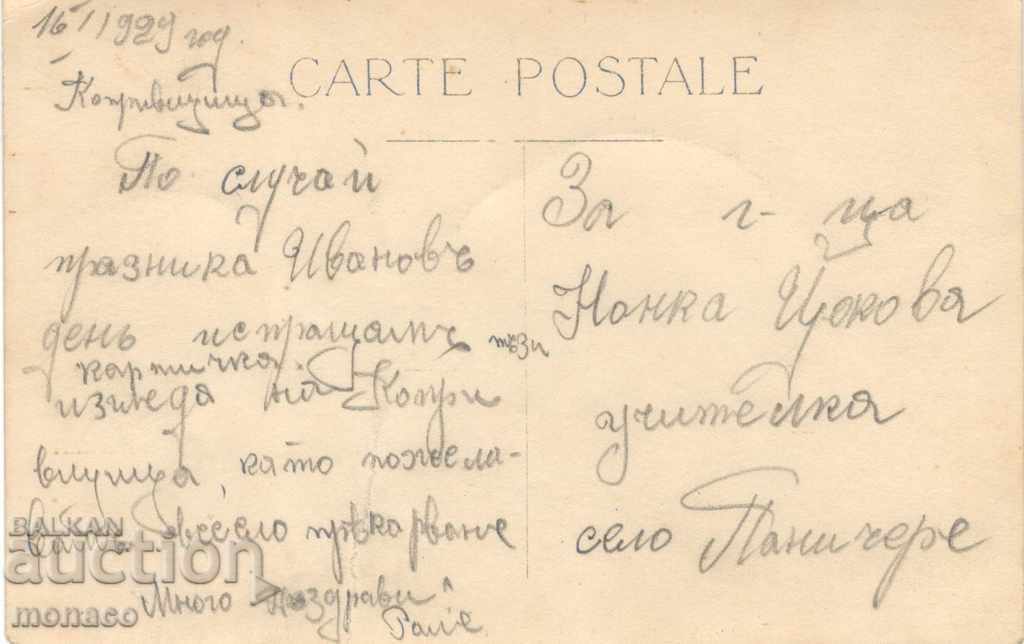 16/I 1929 год.
Копривщица.
CARTE POSTALE
По случай
празника Ивановъ
день испращамъ тѣзи
картичка. С
изгледа на Копри
вщица, като пожела-
весело прѣкарване
Много поздрави
За г-ца
Нонка Цокова
учителка
село Паничере
BALKAN
auction
monaco